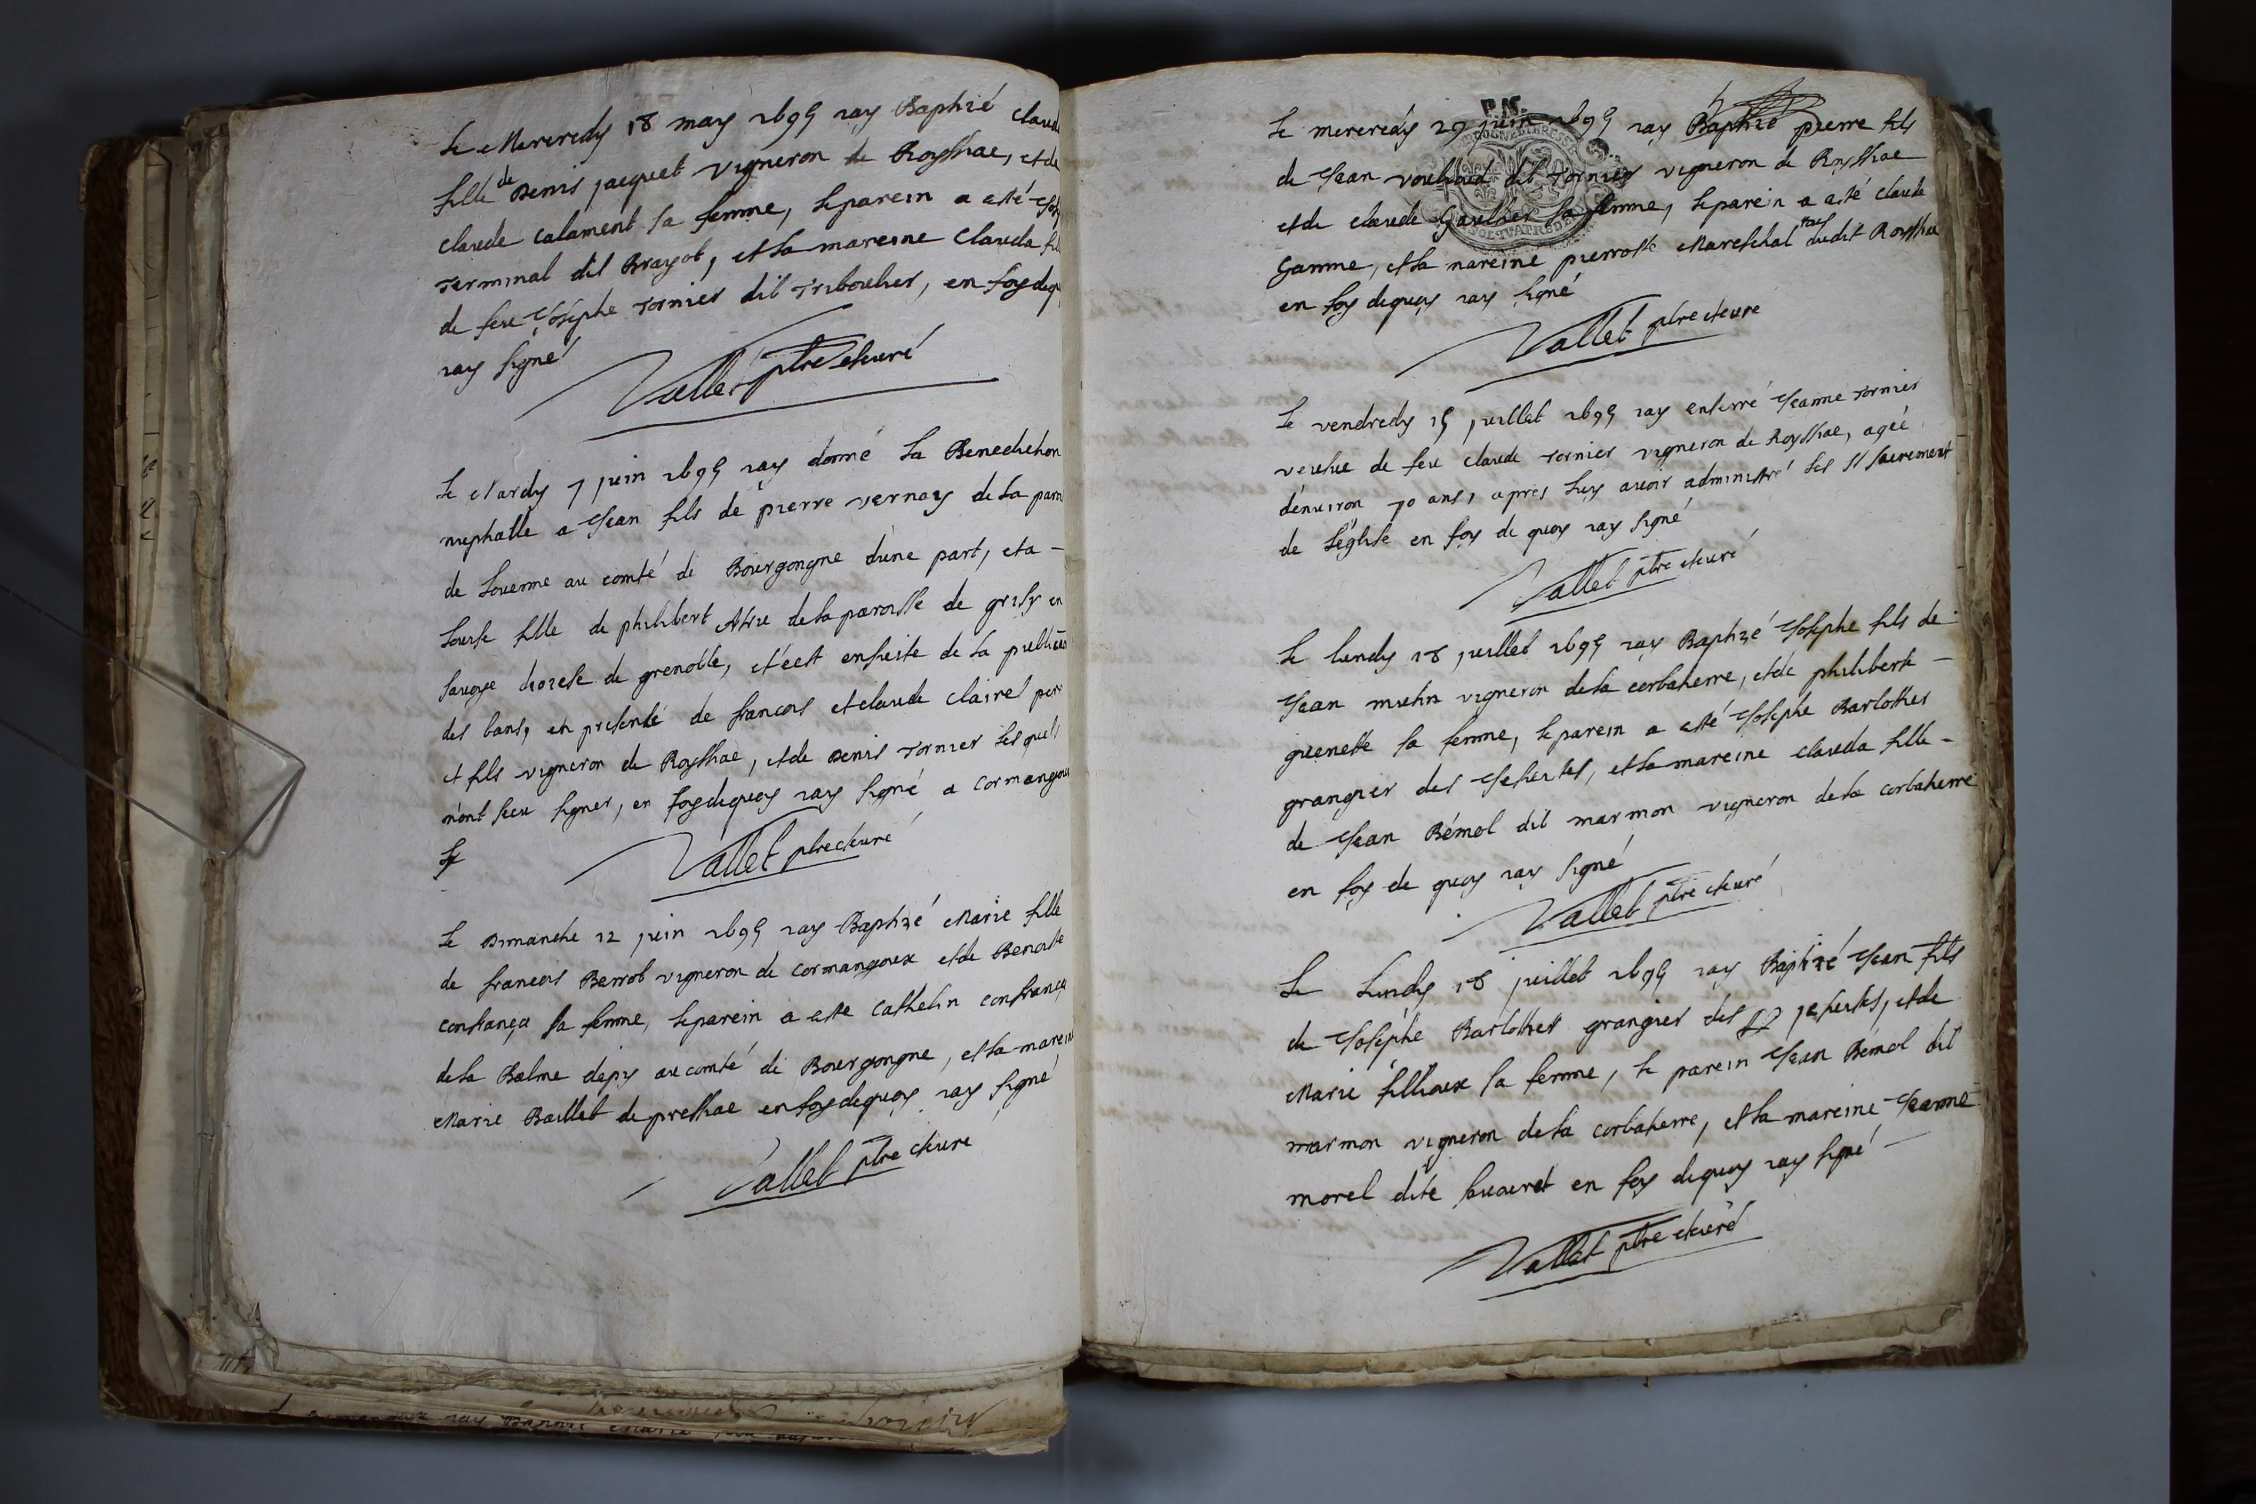 Le Mercredy 18 may 1695 iay Baptizé claud
fille de Denis jacquet vigneron de Royssiac, et de
claude calament sa femme, le parein a esté
Terminal dit Brayot, et la mareine Clauda
de feu Josephe Tornier dit Triboulier, en foy dequ
iay signé
Vallet ptre et curé
Le Mardy 7 juin 1695 iay donné la Benediction
nuptialle a Jean fils de pierre vernay de la paroi
de au comté de Bourgongne d'une part, et a -
fille de philibert de la paroisse de grisy en
savoye diocese de grenoble, et c'est ensuite de la
des bans, en presence de francois et claude clairet pere
et fils vigneron de Royssiac, et de Denis Tornier lesquels
n'ont sceu signer, en foy dequoy iay signé a cormangoux
Vallet ptre et curé
Le Dimanche 12 juin 1695 iay Baptizé Marie fille
de francois Berrod vigneron de cormangoux et de Benoite
sa femme, le parein a esté Cathelin
de la Balme depy au comté de Bourgongne, et la mareine
Marie Baillet de pressiac en foy dequoy iay signé
Vallet ptre et curé
Le mercredy 29 juin 1695 iay Baptizé pierre fils
de Jean dit Tornier vigneron de Royssiac
et de claude Gaulthier sa femme, le parein a esté claude
Gamme, et la mareine pierrotte Mareschal dudit Royssia
en foy dequoy iay signé
Vallet ptre et curé
Le vendredy 15 juillet 1695 iay enterré Jeanne Tornier
veufve de feu claude Tornier vigneron de Royssiac, agée
d'enuiron 70 ans, apres luy auoir administré les sts sacrement
de l'église en foy de quoy iay signé
Vallet ptre et curé
Le lundy 18 juillet 1695 iay Baptizé Josephe fils de
Jean vigneron de la corbatiere, et de philiberte -
sa femme, le parein a esté Josephe Barlothier
grangier des Jesuites, et la mareine clauda fille -
de Jean Bémol dit marmon vigneron de la corbatiere
en foy de quoy iay signé
Vallet ptre et curé
Le Lundy 18 juillet 1695 iay Baptizé Jean fils
de Josephe Barlothier grangier des jesuites, et de
Marie fillioux sa femme, le parein Jean Bémol dit
marmon vigneron de la corbatiere, et la mareine Jeanne
morel dite en foy dequoy iay signé -
Vallet ptre et curé